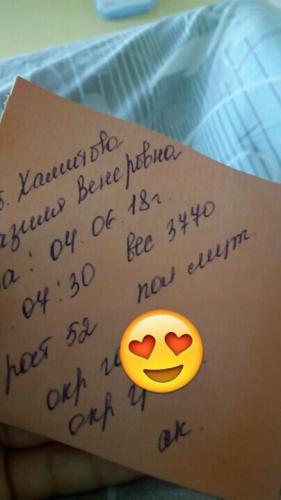 б. Хамитова
Венеровна
04.06.18г.
04:30 вес 3770
рост 52 пол муж.
окр
окр
ак.